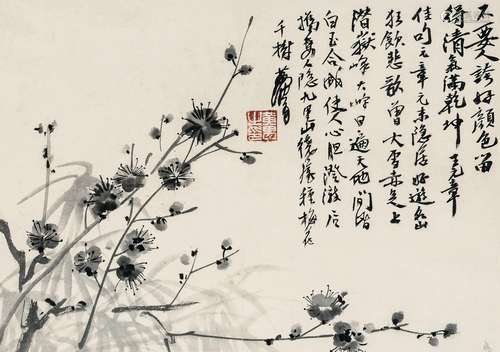 不要人誇好顏色留
得清氣滿乾坤 王元章
佳句元章元末隱居好遊名山
狂飲悲歌曾大雪赤足上
潛嶽峰大呼曰遍天地間皆
白玉合成使人心胆澄澈后
攜妻入隱九里山繞屋種梅花
千樹